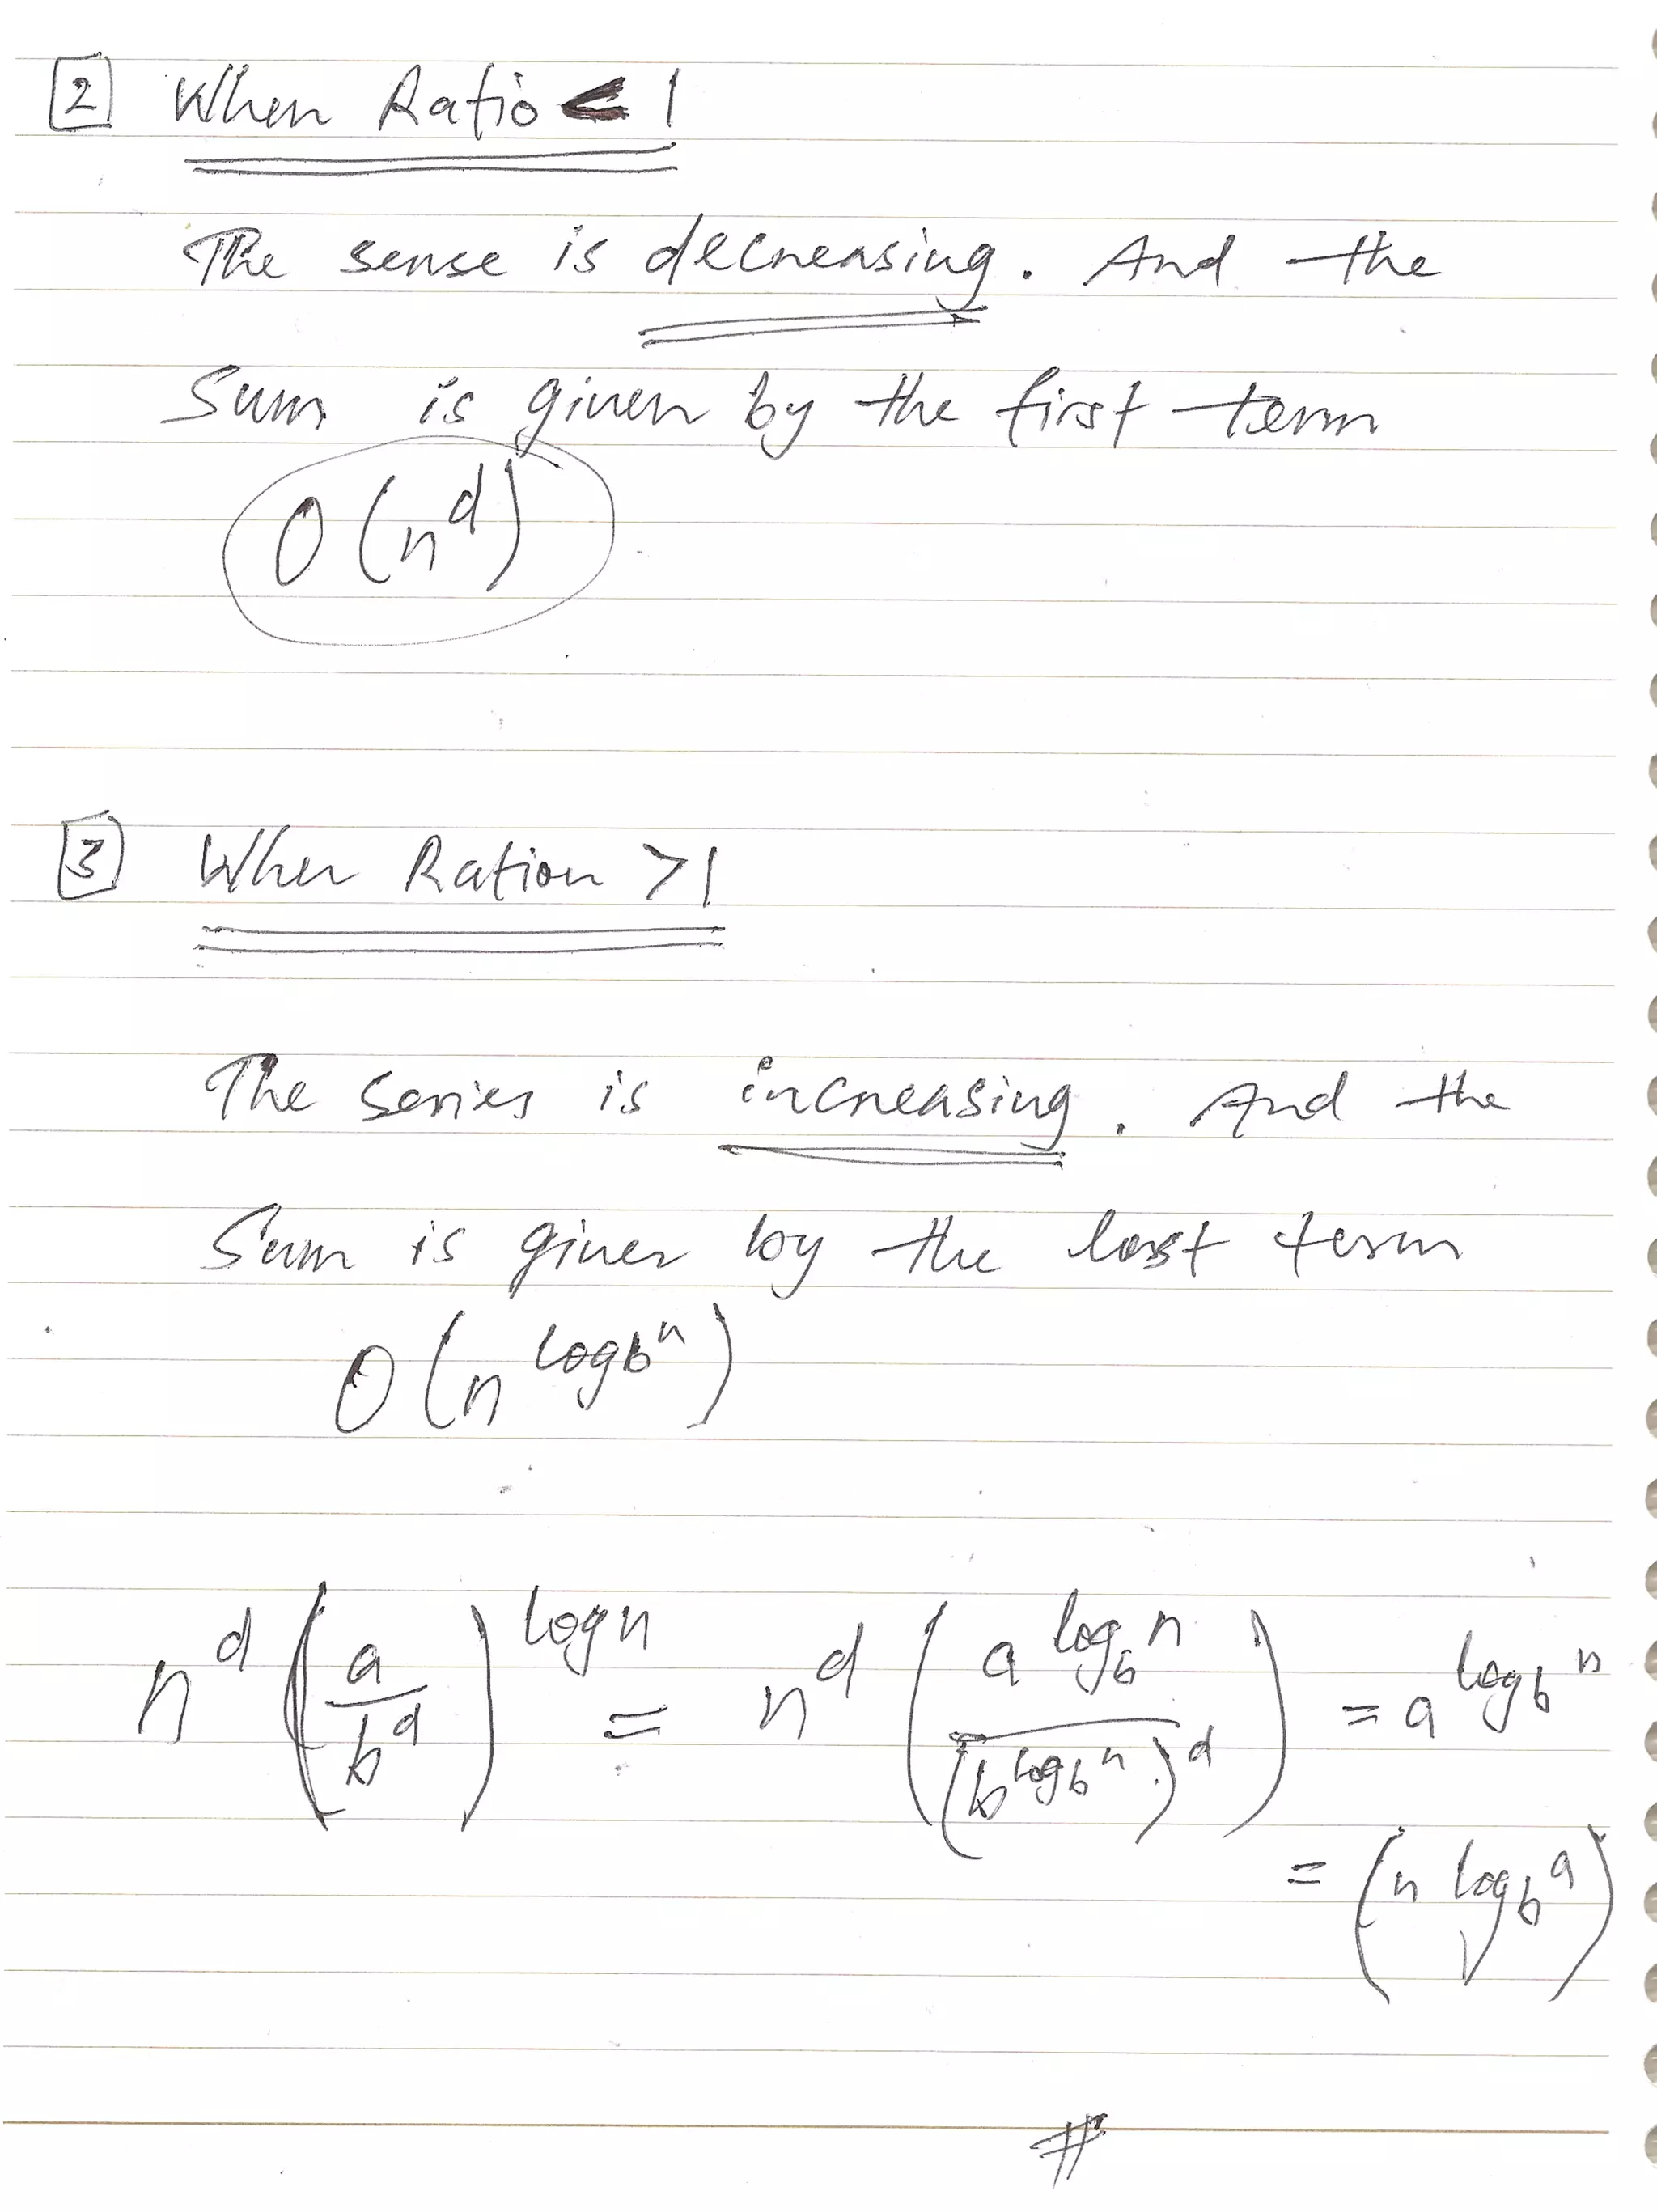 [2] When Ratio < 1
The sense is decreasing. And the
Sum is given by the first term
O(n^d)
[3] When Ration >1
The series is increasing. And the
Sum is given by the last term
O(n^{log_b n})
n^d (a/b^d)^{log n} = n^d (a^{log_b n}/(b^{log_b n})^d) = a^{log_b n}
= (n^{log_b a})
#